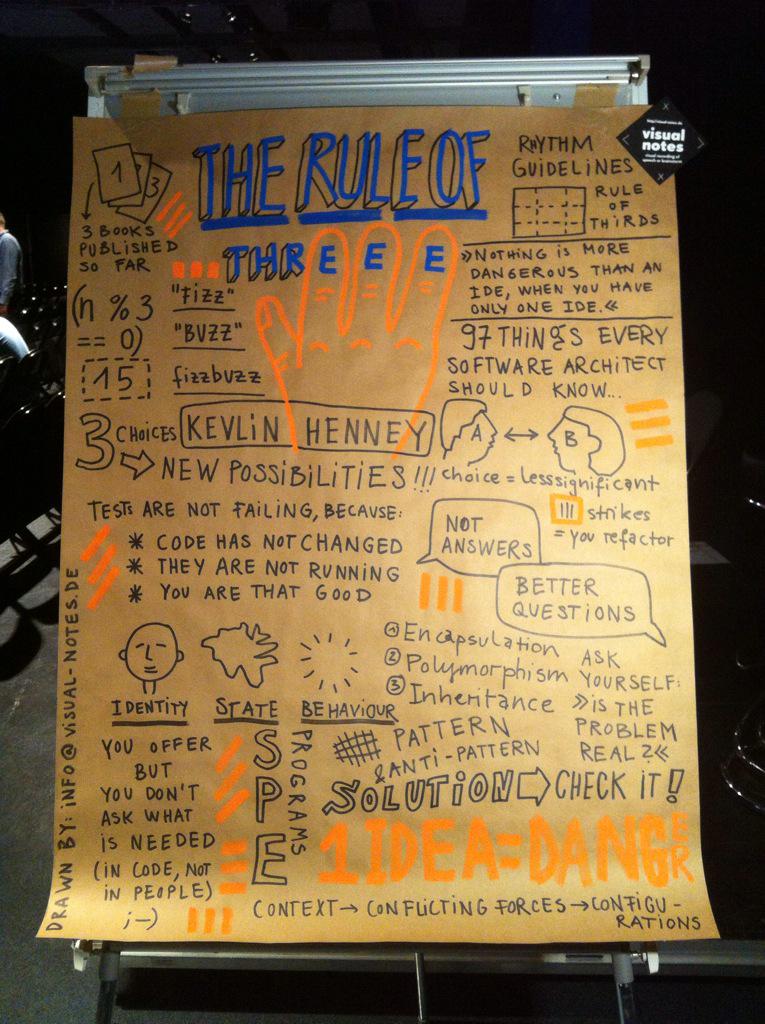 THE RULE OF
THREEE
1
3
3 BOOKS
PUBLISHED
SO FAR
RHYTHM
GUIDELINES
RULE
OF
THIRDS
visual
notes
(n %3
== 0)
15
"FIZZ"
"BUZZ"
fizzbuzz
»NOTHING IS MORE
DANGEROUS THAN AN
IDE, WHEN YOU HAVE
ONLY ONE IDE.«
97 THINGS EVERY
SOFTWARE ARCHITECT
SHOULD KNOW...
3 CHOICES
KEVLIN HENNEY
NEW POSSIBILITIES!!!
A
B
choice = less significant
III strikes
= you refactor
TESTS ARE NOT FAILING, BECAUSE:
* CODE HAS NOT CHANGED
* THEY ARE NOT RUNNING
* YOU ARE THAT GOOD
NOT
ANSWERS
BETTER
QUESTIONS
IDENTITY
STATE
BEHAVIOUR
① Encapsulation
② Polymorphism
③ Inheritance
ASK
YOURSELF:
»IS THE
PROBLEM
REAL?«
PATTERN
& ANTI-PATTERN
SOLUTION CHECK IT!
YOU OFFER
BUT
YOU DON'T
ASK WHAT
IS NEEDED
(IN CODE, NOT
IN PEOPLE)
;-)
SPE
PROGRAMS
1 IDEA=DANGER
CONTEXT→ CONFLICTING FORCES →CONFIGU-
RATIONS
DRAWN BY: INFO@VISUAL-NOTES.DE